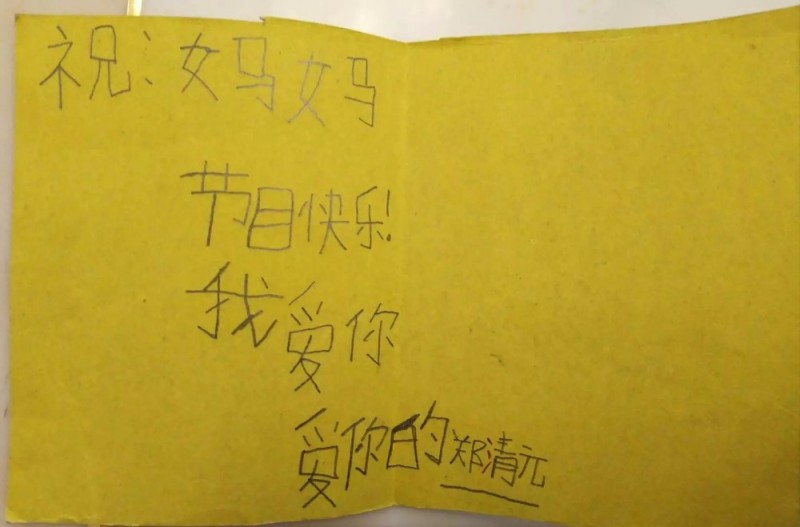 祝:妈妈
节目快乐!
我爱你
爱你的郑清元